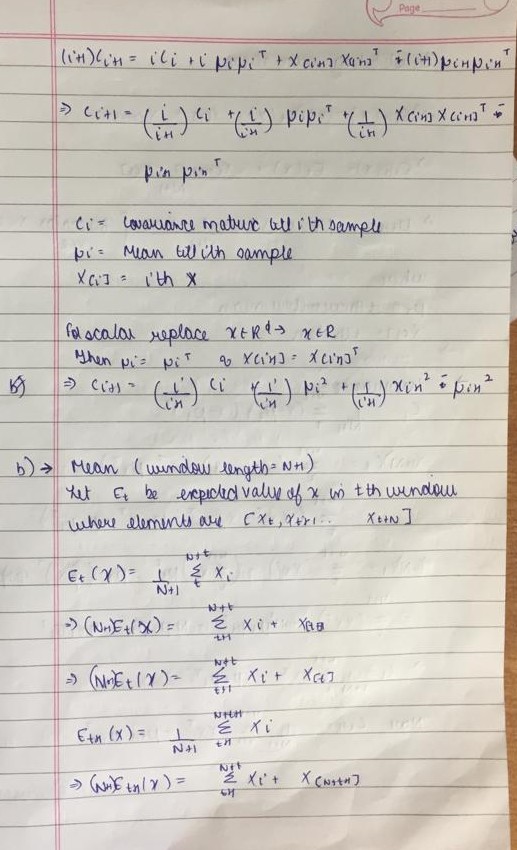 Page
(i+1)Ci+1 = iCi + i μiμiᵀ + X[i+1] X[i+1]ᵀ - (i+1)μi+1μi+1ᵀ
⇒ Ci+1 = (i/i+1) Ci + (i/i+1) μiμiᵀ + (1/i+1) X[i+1] X[i+1]ᵀ -
μi+1 μi+1ᵀ
Ci = covariance matrix till ith sample
μi = Mean till ith sample
X[i] = i'th X
For scalar replace X∈Rᵈ → X∈R
Then μi = μiᵀ & X[i+1] = X[i+1]ᵀ
b) ⇒ Ci+1 = (i/i+1) Ci + (i/i+1) μi² + (1/i+1) Xi+1² - μi+1²
b) → Mean (window length = N+1)
Let Et be expected value of x in tth window
where elements are [Xt, Xt+1, .. Xt+N]
Et(X) = 1/N+1 Σ_{t}^{N+t} Xi
⇒ (N+1)Et(X) = Σ_{t+1}^{N+t} Xi + X[t]
⇒ (N+1)Et(X) = Σ_{t+1}^{N+t} Xi + X[t]
Et+1(X) = 1/N+1 Σ_{t+1}^{N+t+1} Xi
⇒ (N+1)Et+1(X) = Σ_{t+1}^{N+t} Xi + X[N+t+1]